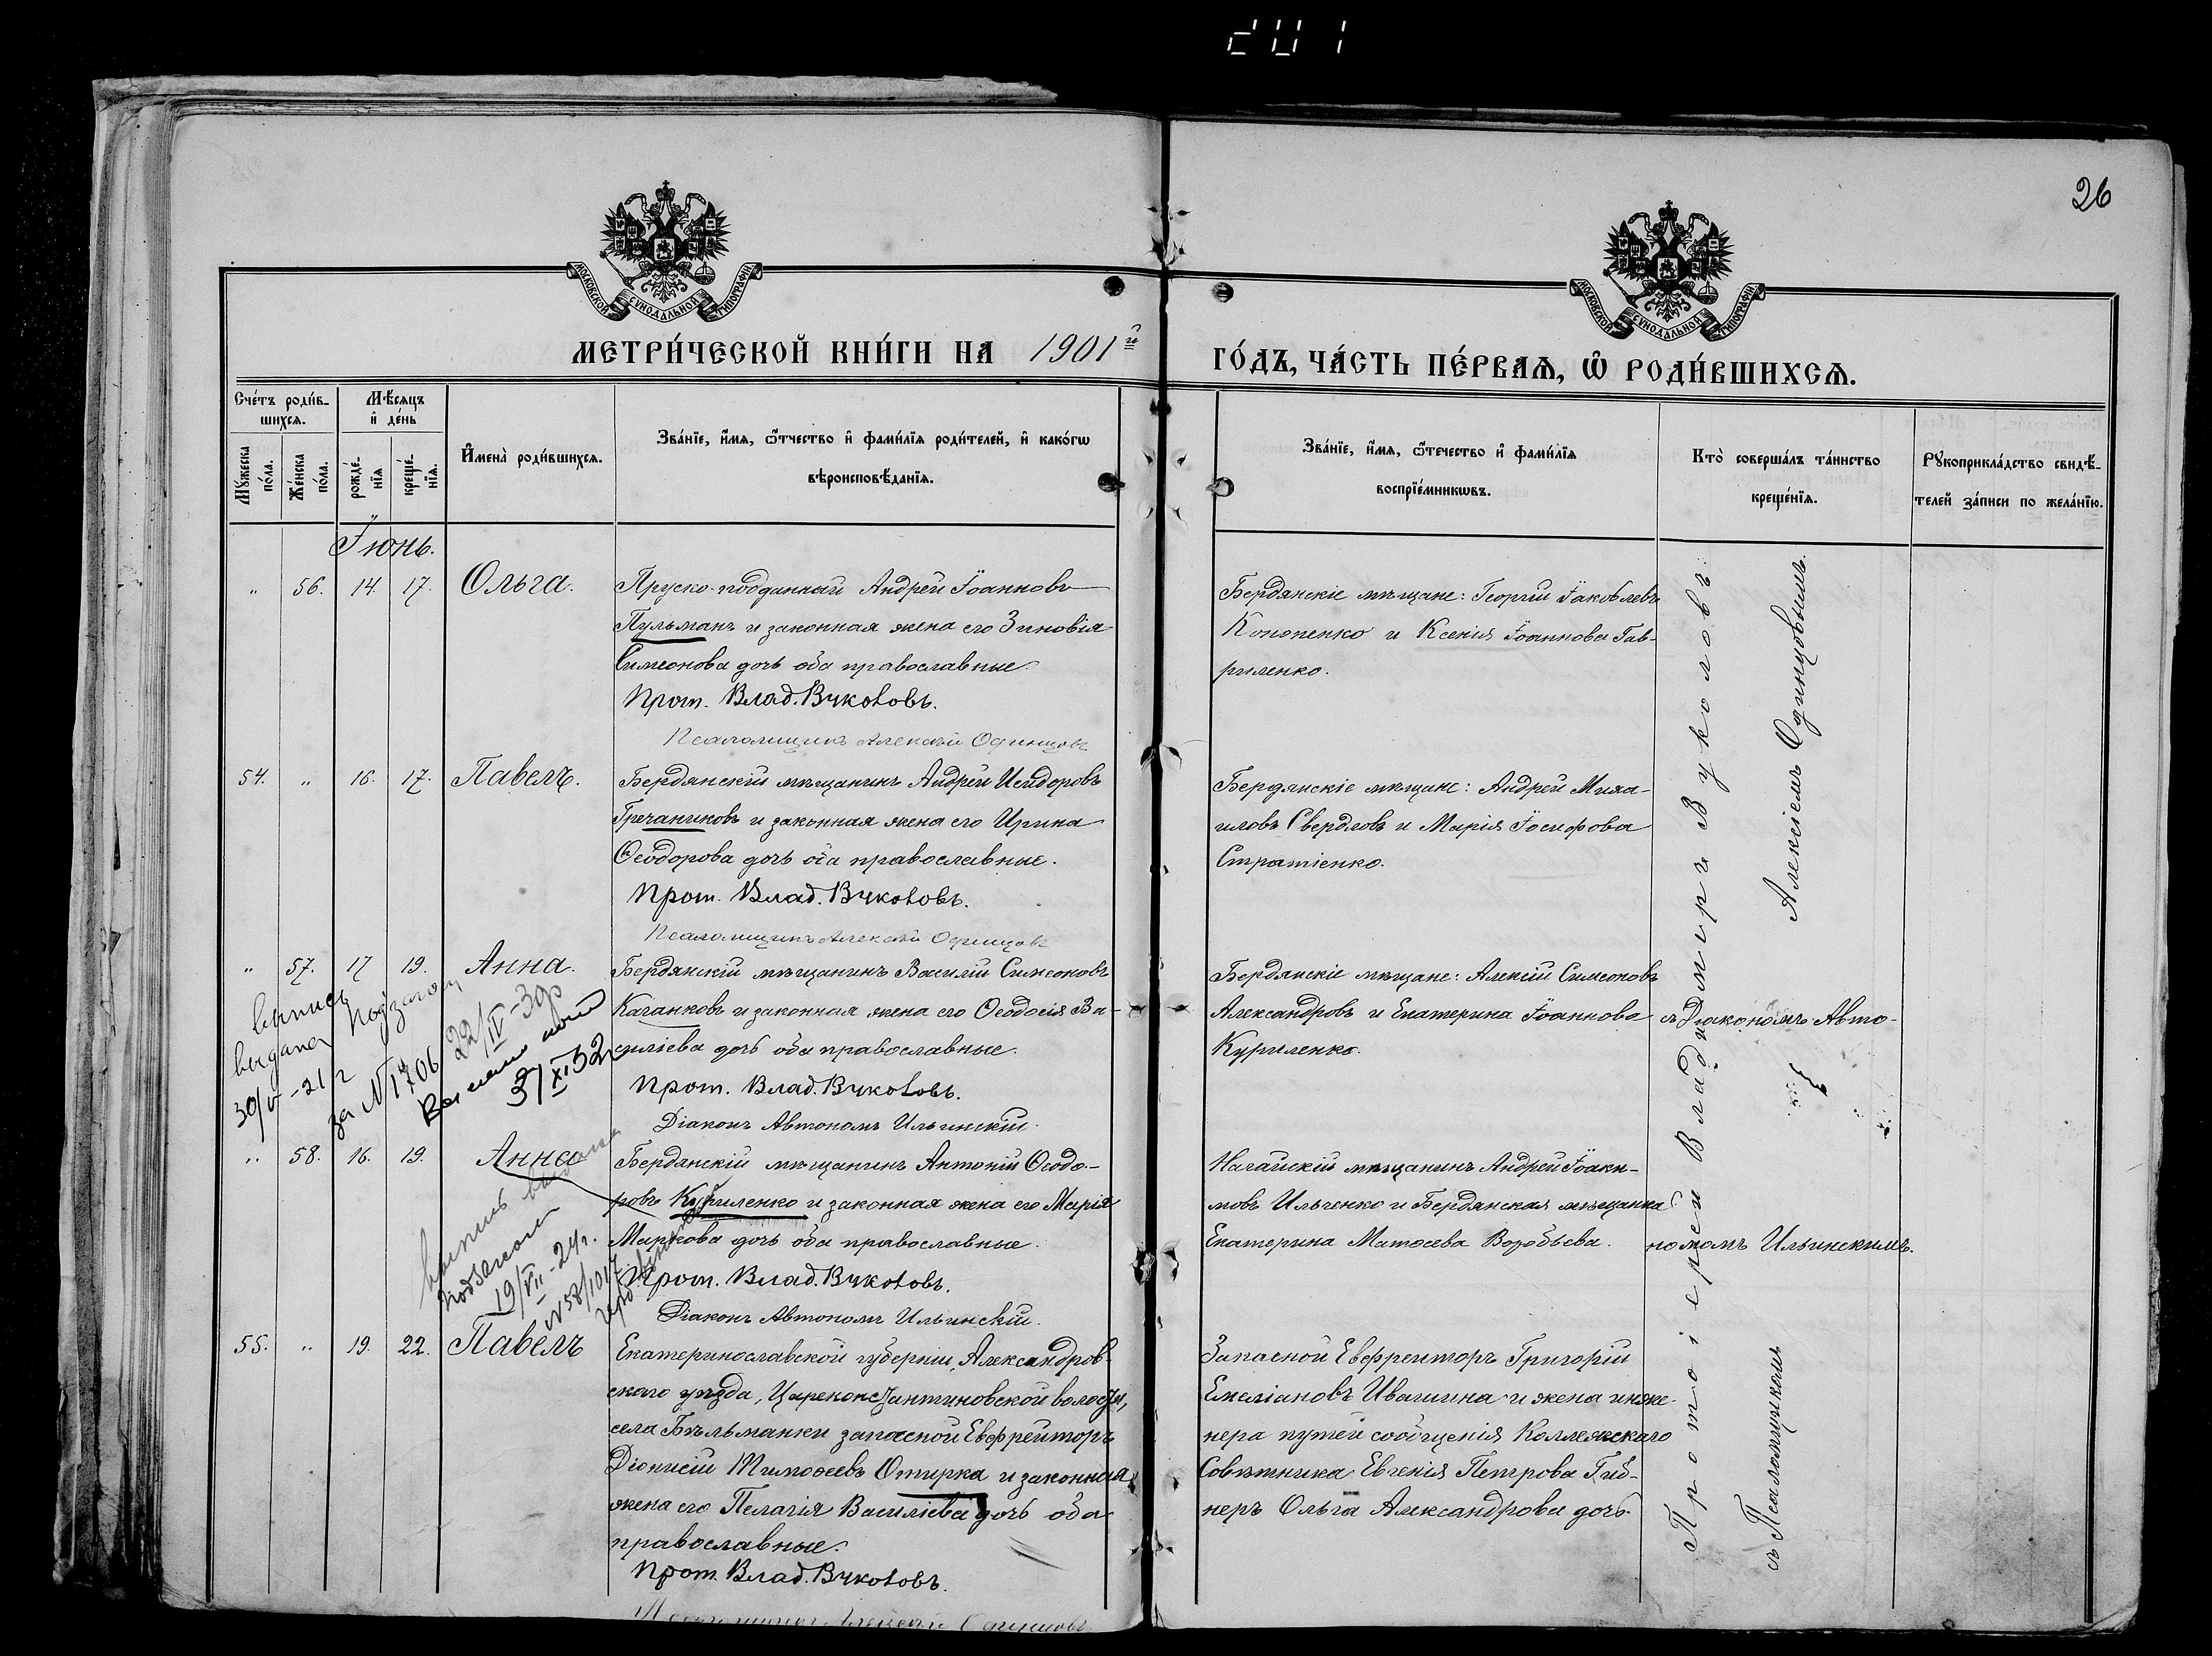 201
26
МОСКОВСКОЙ СѴНОДАЛЬНОЙ ТИПОГРАФІИ
МОСКОВСКОЙ СѴНОДАЛЬНОЙ ТИПОГРАФІИ
МЕТРИ́ЧЕСКОЙ КНИ́ГИ НА 1901й
ГО́ДЪ, ЧА́СТЬ ПЕ́РВАѦ, Ѽ РОДИ́ВШИХСѦ.
Сче́тъ роди́в-
шихсѧ.
Мѣ́сѧцъ
и҆ де́нь
Мꙋ́жеска по́ла.
Же́нска по́ла.
рожде́-
нїѧ
креще́-
нїѧ.
И҆мена̀ роди́вшихсѧ.
Зва́нїе, и҆́мѧ, ѻ҆́тчество и҆ фами́лїѧ роди́телей, и҆ како́гѡ
вѣроисповѣ́данїѧ.
Зва́нїе, и҆́мѧ, ѻ҆́течество и҆ фами́лїѧ
воспрїе́мникѡвъ.
Кто̀ соверша́лъ та́инство
креще́нїѧ.
Рꙋкоприкла́дство свидѣ́-
телей за́писи по жела́нїю.
Іюнь.
" 56. 14. 17. Ольга.
Пруско-подданный Андрей Іоанновъ
Пульманъ и законная жена его Зиновія
Симеонова дочь оба православные.
Прот. Влад. Вуколовъ.
Псаломщикъ Алексѣй Одинцовъ
Бердянскіе мѣщане: Георгій Іаковлевъ
Кононенко и Ксенія Іоаннова Гав-
риленко.
54. " 16. 17. Павелъ.
Бердянскій мѣщанинъ Андрей Исидоровъ
Гречаниковъ и законная жена его Ирина
Ѳеодорова дочь оба православные.
Прот. Влад. Вуколовъ.
Псаломщикъ Алексѣй Одинцовъ
Бердянскіе мѣщане: Андрей Миха-
иловъ Свердловъ и Марія Іосифова
Стратіенко.
" 57. 17 19. Анна.
Бердянскій мѣщанинъ Василій Симеоновъ
Каганковъ и законная жена его Ѳеодосія Ва-
силіева дочь оба православные.
Прот. Влад. Вуколовъ.
Діаконъ Автономъ Ильинскій.
Бердянскіе мѣщане: Алексій Симеоновъ
Александровъ и Екатерина Іоаннова
Куриленко.
выпись
выдана
30/V-21 г
за №1706
22/IV-30
31/XI 32
" 58. 16. 19. Анна
Бердянскій мѣщанинъ Антоній Ѳеодо-
ровъ Куриленко и законная жена его Марія
Маркова дочь оба православные.
Прот. Влад. Вуколовъ.
Діаконъ Автономъ Ильинскій.
Ногайскій мѣщанинъ Андрей Іоаки-
мовъ Ильченко и Бердянская мѣщанка
Екатерина Матѳеева Воробьева.
выпись выдана
19/VII-24г.
№58/101
55. " 19. 22. Павелъ
Екатеринославской губерніи, Александров-
скаго уѣзда, Цареконстантиновской волости,
села Бѣльманки запасной Ефрейторъ
Діонисій Тимоѳеевъ Отирка и законная
жена его Пелагія Василіева дочь оба
православные.
Прот. Влад. Вуколовъ.
Псаломщикъ Алексѣй Одинцовъ.
Запасной Ефрейторъ Григорій
Емеліановъ Ивашина и жена инже-
нера путей сообщенія Коллежскаго
Совѣтника Евгенія Петрова Гиб-
неръ Ольга Александрова дочь.
Протоіерей Владиміръ Вуколовъ
съ Псаломщикомъ
Алексіемъ Одинцовымъ.
съ Діакономъ Авто-
номомъ Ильинскимъ.